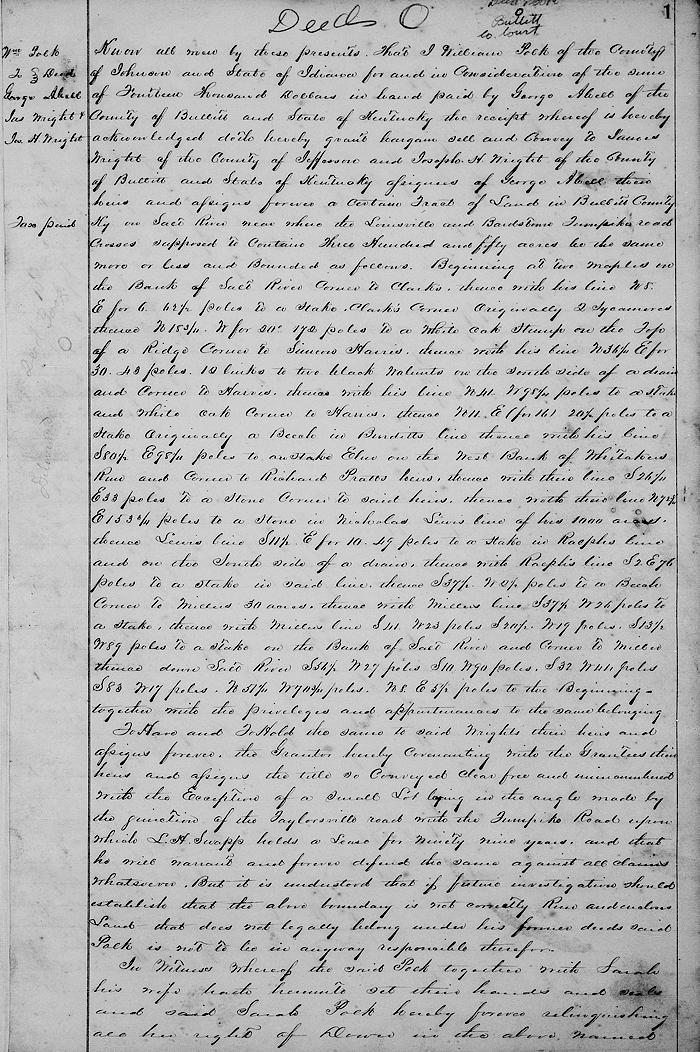 Deeds O
Deed Book
O
Bullitt
Co Court
1
Wm Polk
To } Deed
George Abell
Jas Wright &
Jos. H. Wright
Taxe paid
Know all men by these presents. That I William Polk of the County
of Johnson and State of Indiana for and in Consideration of the sum
of Fourteen Thousand Dollars in hand paid by George Abell of the
County of Bullitt and State of Kentucky the receipt whereof is hereby
acknowledged doth hereby grant bargain sell and Convey to James
Wright of the County of Jefferson and Joseph H Wright of the County
of Bullitt and State of Kentucky assignees of George Abell their
heirs and assigns forever a Certain Tract of Land in Bullitt County
Ky on Salt River near where the Louisville and Bardstown Turnpike road
Crosses supposed to Contain Three Hundred and fifty acres be the same
more or less and Bounded as follows. Beginning at two maples on
the Bank of Salt River Corner to Clarks, thence with his line N8.
E for 6. 62½ poles to a Stake, Clark's Corner Originally 2 Sycamores
thence N 18¾. W for 20° 172 poles to a White oak Stump on the Top
of a Ridge Corner to Simons Harris. thence with his line N36½ E for
30. 43 poles. 12 links to two black Walnuts on the South side of a drain
and Corner to Harris, thence with his line N41. W98¼ poles to a Stake
and White oak Corner to Harris, thence N11. E (for 16) 20½ poles to a
Stake Originally a Beech in Burditts line thence with his line
S80½ E98¼ poles to an Stake Elm on the West Bank of Whitakers
Run and Corner to Richard Pratts heirs, thence with their line S26¼
E33 poles to a Stone Corner to said heirs. thence with their line N72½
E153¾ poles to a Stone in Nicholas Lewis line of his 1000 acres.
thence Lewis line S11½. E for 10. 49 poles to a Stake in Raephs line
and on the South side of a drain, thence with Raephs line S2. E76
poles to a Stake in said line, thence S37½ W8½ poles to a Beech
Corner to Millers 30 acres, thence with Millers line S37½ W26 poles to
a Stake, thence with Millers line S41. W23 poles S20½. W19 poles. S13½
W89 poles to a Stake on the Bank of Salt River and Corner to Miller
thence down Salt River S56½ W27 poles S40 W90 poles, S32 W44 poles
S83 W17 poles. N51½ W70¾ poles. N8. E5½ poles to the Beginning-
together with the priveleges and appurtenances to the same belonging
To Have and To Hold the same to said Wrights their heirs and
assigns forever, the Grantor hereby Covenanting with the Grantees their
heirs and assigns the title so Conveyed Clear free and unincumbered
with the Exception of a Small Lot lying in the angle made by
the junction of the Taylorsville road with the Turnpike Road upon
which L. H. Swapp holds a Lease for Ninety nine years, and that
he will warrant and forever defend the same against all claims
whatsoever, But it is understood that if future investigation should
establish that the above boundary is not correctly Run and encloses
Land that does not legally belong under his former deeds said
Polk is not to be in anyway responsible therefor.
In Witness whereof the said Polk together with Sarah
his wife hath hereunto set their hands and seals
and said Sarah Polk hereby forever relinquishing
all her right of Dower in the above named